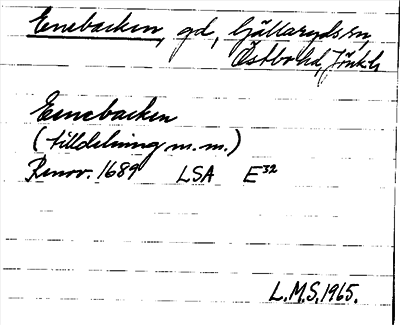 Enebacken, gd, Gällaryds sn,
Östbo hd, Jönk.l.
Eenebacken
(tilldelning m.m.)
Renov. 1689 LSA E³²
L.M.S. 1965.